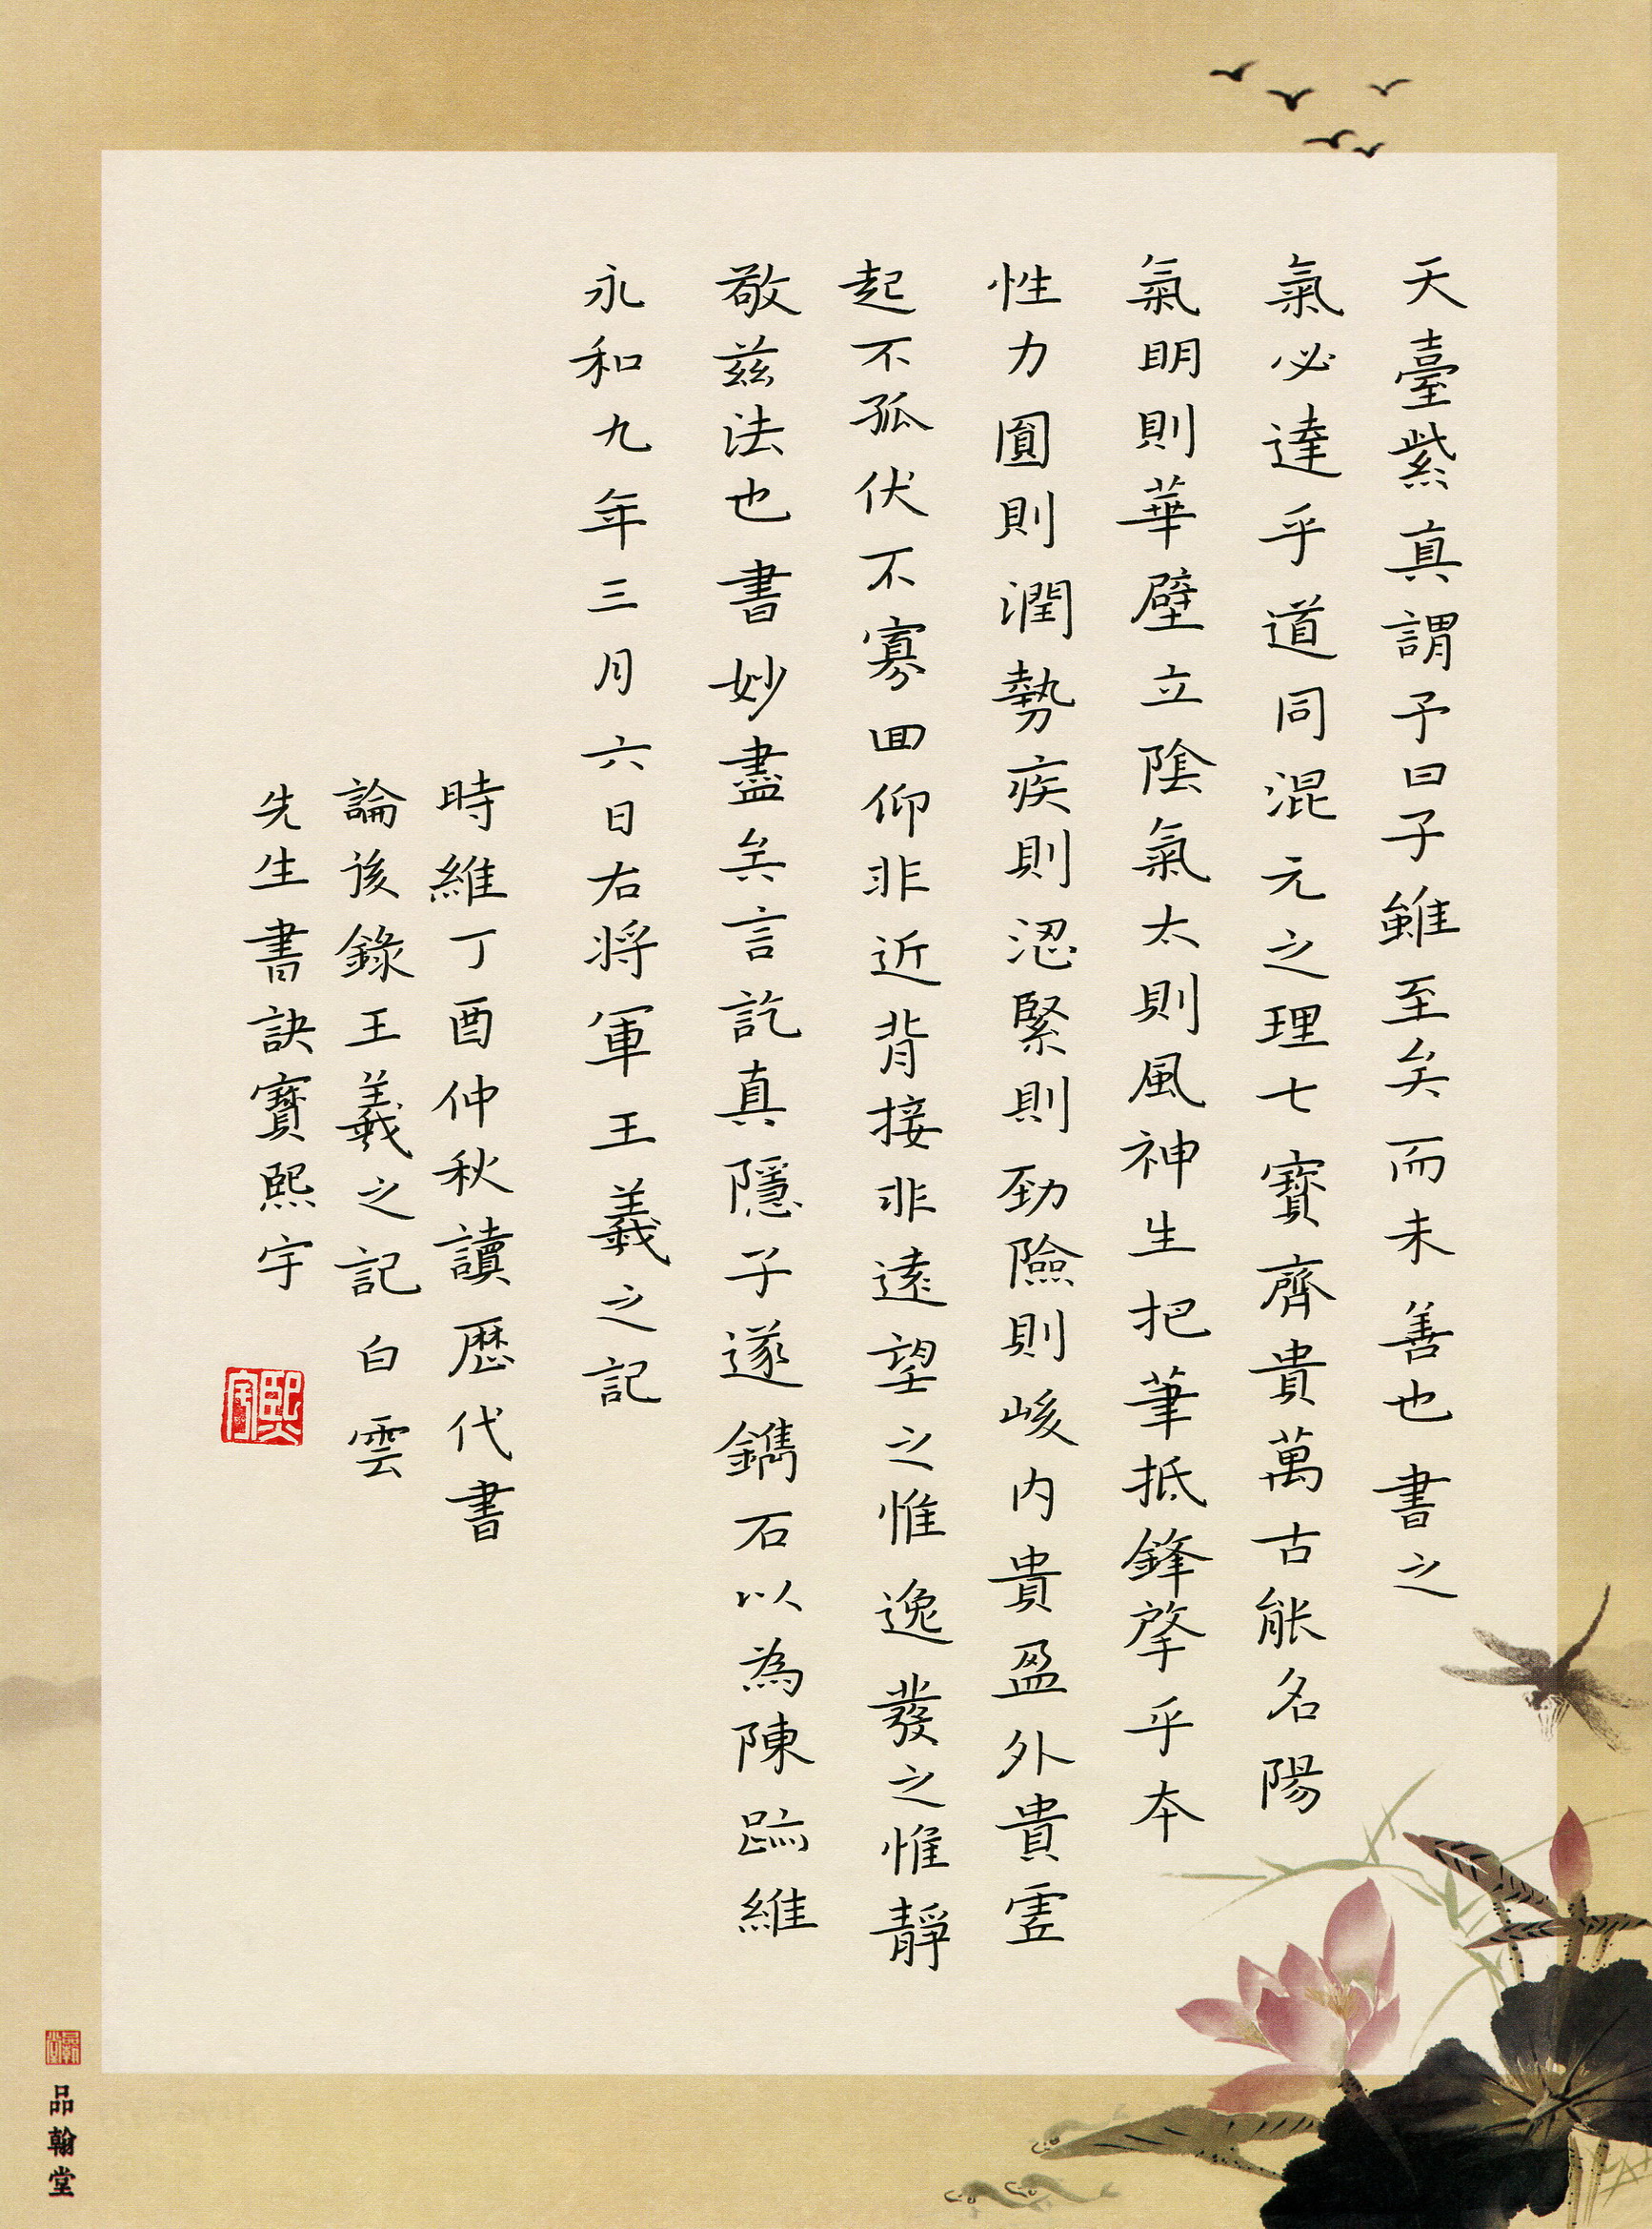 天臺紫真謂予曰子雖至矣而未善也書之
氣必達乎道同混元之理七寶齊貴萬古能名陽
氣明則華壁立陰氣太則風神生把筆抵鋒肈乎本
性力圓則潤勢疾則澀緊則勁險則峻内貴盈外貴虛
起不孤伏不寡回仰非近背接非遠望之惟逸發之惟靜
敬兹法也書妙盡矣言訖真隱子遂鐫石以為陳跡維
永和九年三月六日右将軍王羲之記
時維丁酉仲秋讀歷代書
論後錄王羲之記白雲
先生書訣寶熙宇
熙宇
品翰堂